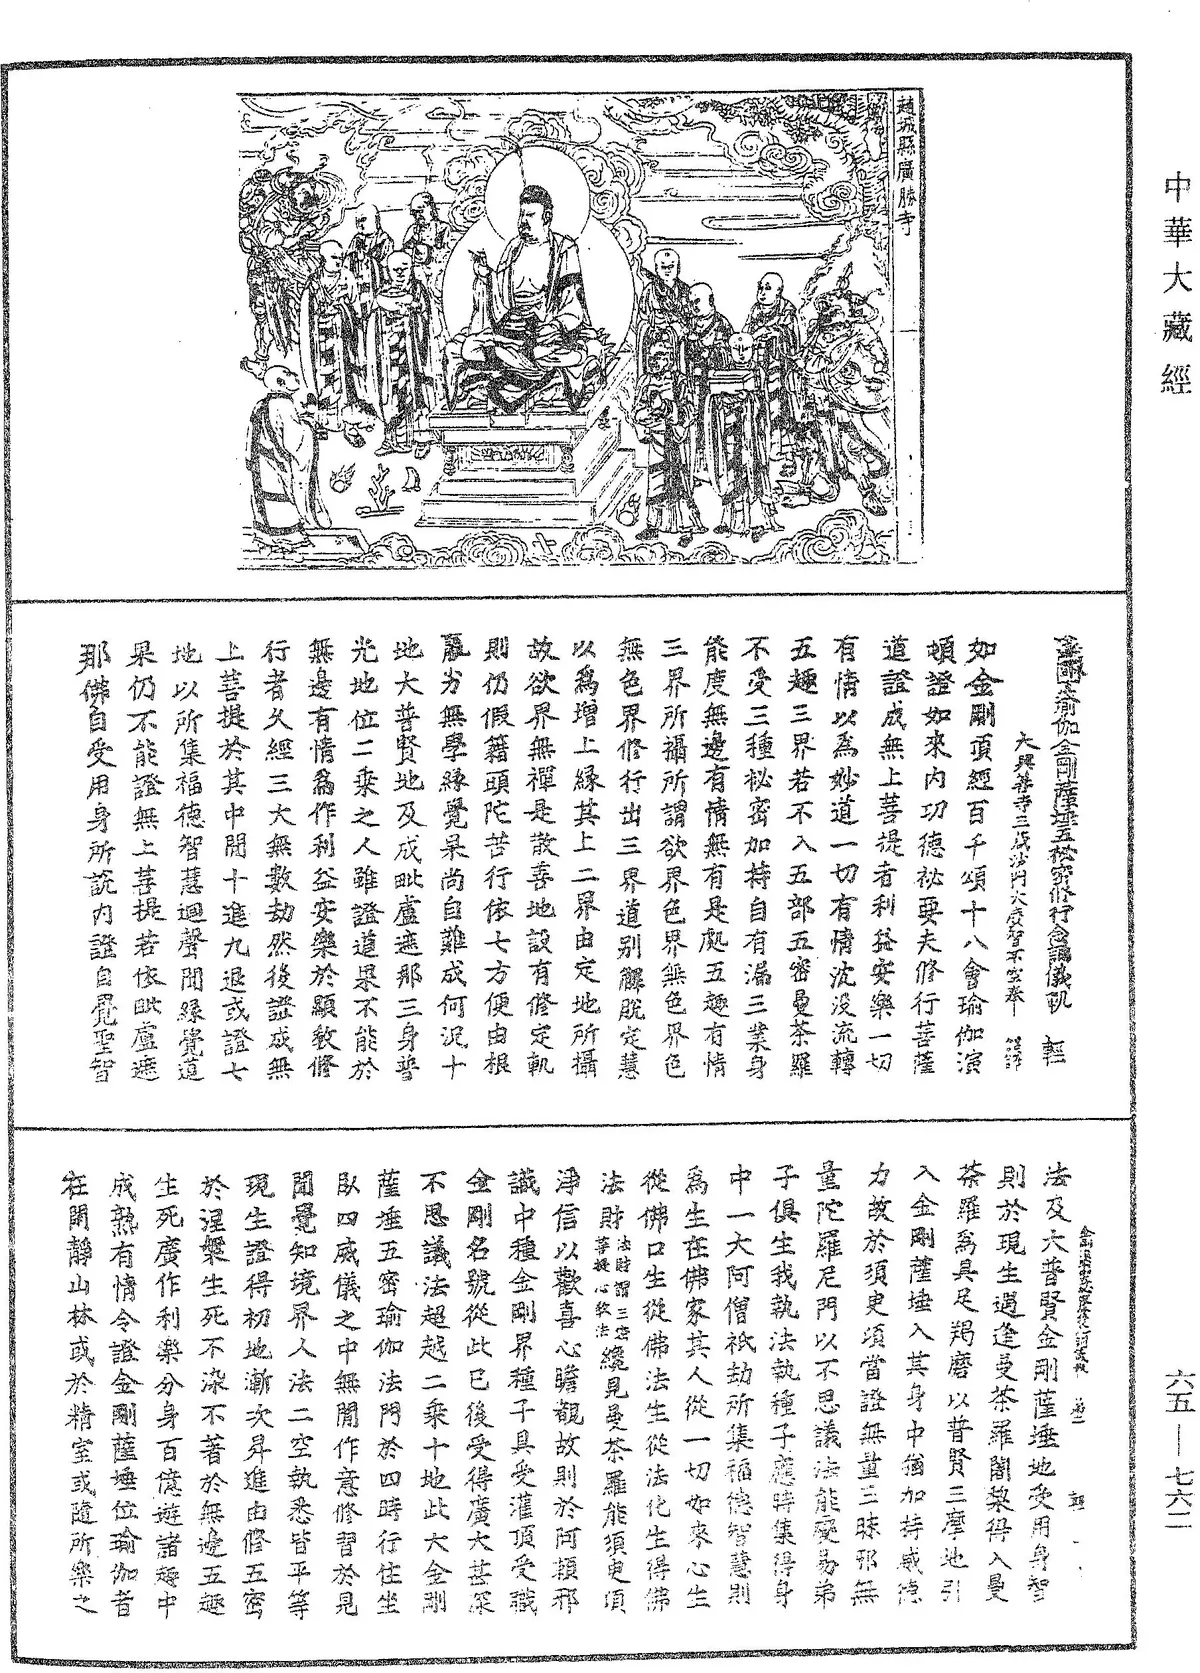 中華大藏經
趙城縣廣勝寺
金剛頂瑜伽金剛薩埵五祕密修行念誦儀軌　輕
大興善寺三藏沙門大廣智不空奉　詔譯
如金剛頂經百千頌十八會瑜伽演
頓證如來內功德祕要夫修行菩薩
道證成無上菩提者利益安樂一切
有情以為妙道一切有情沈沒流轉
五趣三界若不入五部五密曼荼羅
不受三種祕密加持自有漏三業身
能度無邊有情無有是處五趣有情
三界所攝所謂欲界色界無色界色
無色界修行出三界道別解脫定慧
以為增上緣其上二界由定地所攝
故欲界無禪是散善地設有修定軌
則仍假藉頭陀苦行依七方便由根
羸劣無學緣覺果尚自難成何況十
地大普賢地及成毗盧遮那三身普
光地位二乘之人雖證道果不能於
無邊有情為作利益安樂於顯教修
行者久經三大無數劫然後證成無
上菩提於其中間十進九退或證七
地以所集福德智慧迴聲聞緣覺道
果仍不能證無上菩提若依毗盧遮
那佛自受用身所說內證自覺聖智
法及大普賢金剛薩埵地受用身智
則於現生遇逢曼荼羅闍梨得入曼
荼羅為具足羯磨以普賢三摩地引
入金剛薩埵入其身中猶加持威德
力故於須臾頃當證無量三昧耶無
量陀羅尼門以不思議法能變易弟
子俱生我執法執種子應時集得身
中一大阿僧祇劫所集福德智慧則
為生在佛家其人從一切如來心生
從佛口生從佛法生從法化生得佛
法財法財謂三密菩提心教法纔見曼荼羅能須臾頃
淨信以歡喜心瞻覩故則於阿賴耶
識中種金剛界種子具受灌頂受職
金剛名號從此已後受得廣大甚深
不思議法超越二乘十地此大金剛
薩埵五密瑜伽法門於四時行住坐
臥四威儀之中無間作意修習於見
聞覺知境界人法二空執悉皆平等
現生證得初地漸次昇進由修五密
於涅槃生死不染不著於無邊五趣
生死廣作利樂分身百億遊諸趣中
成熟有情令證金剛薩埵位瑜伽者
在閑靜山林或於精室或隨所樂之
六五—七六二